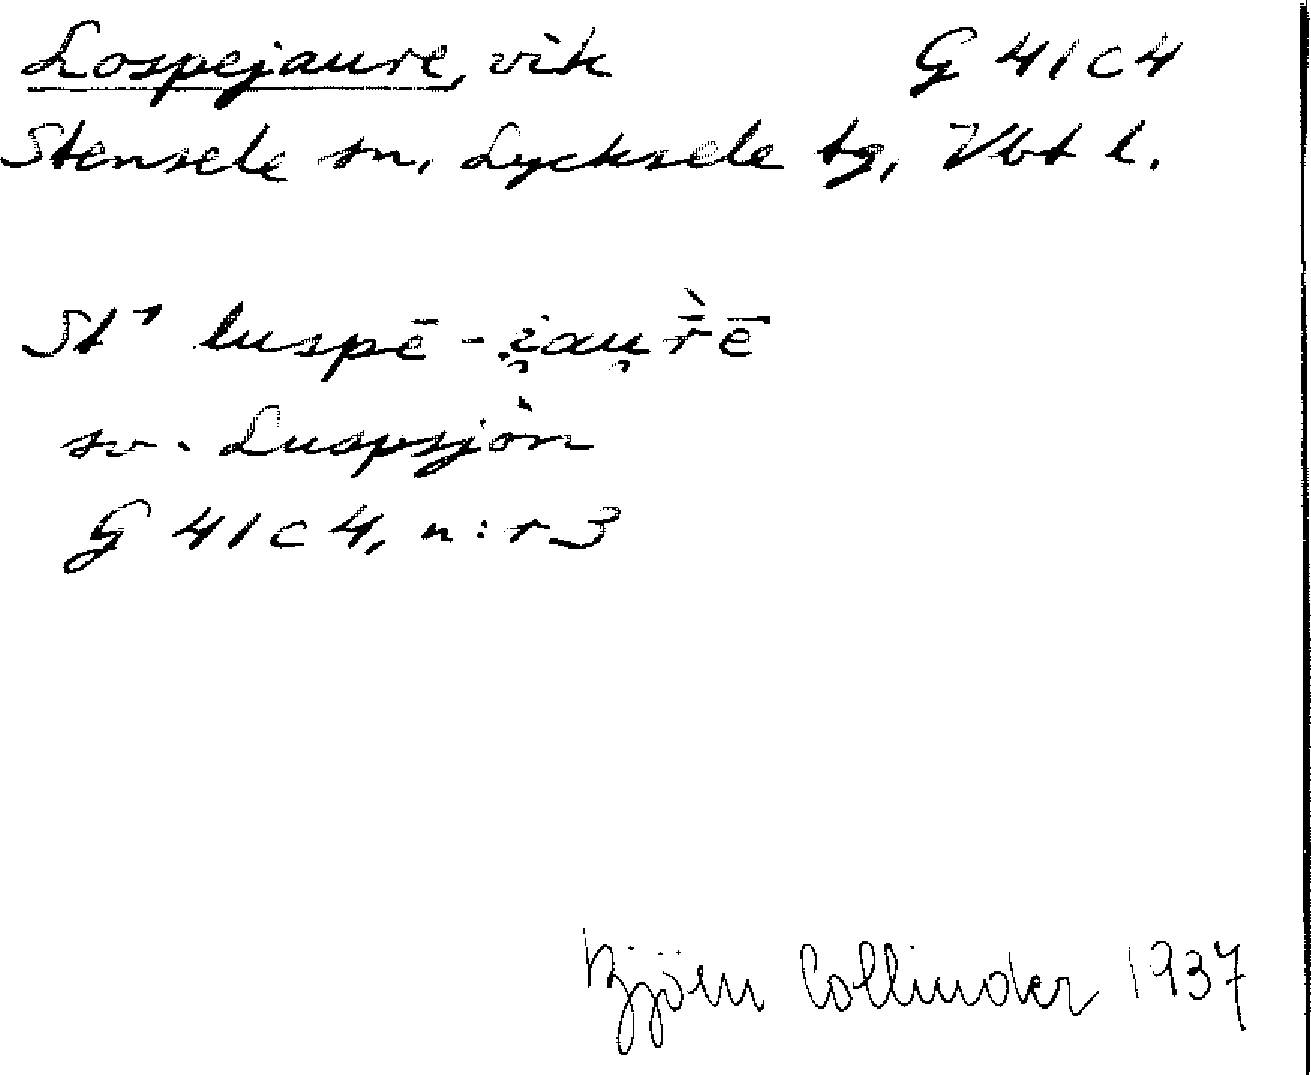 Lospejaure, vik G 41 c 4
Stensele sn, Lycksele tg, Vbt l.
St¹ luspē-i̯au̯r̄̀ē
sv. Luspsjön
G 41 c 4, n:r 3
Björn Collinder 1937